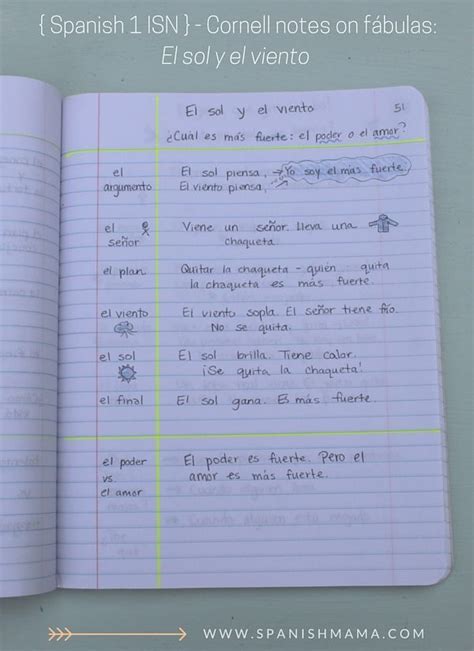 { Spanish 1 ISN } - Cornell notes on fábulas:
El sol y el viento
El sol y el viento 51
¿Cuál es más fuerte: el poder o el amor?
el argumento
El sol piensa, → Yo soy el más fuerte.
El viento piensa,
el señor
Viene un señor. Lleva una
chaqueta.
el plan
Quitar la chaqueta - quién quita
la chaqueta es más fuerte.
el viento
El viento sopla. El señor tiene frío.
No se quita.
el sol
El sol brilla. Tiene calor.
¡Se quita la chaqueta!
el final
El sol gana. Es más fuerte.
el poder
vs.
el amor
El poder es fuerte. Pero el
amor es más fuerte.
WWW.SPANISHMAMA.COM